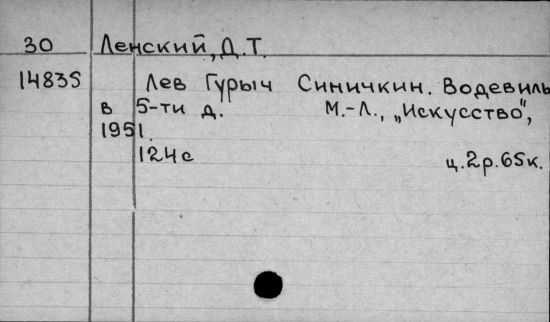 30 Ленский, Д.Т.
14835 Лев Гурыч Синичкин. Водевиль
в 5-ти д. М.-Л., „Искусство",
1951.
124с ц.2р.65к.